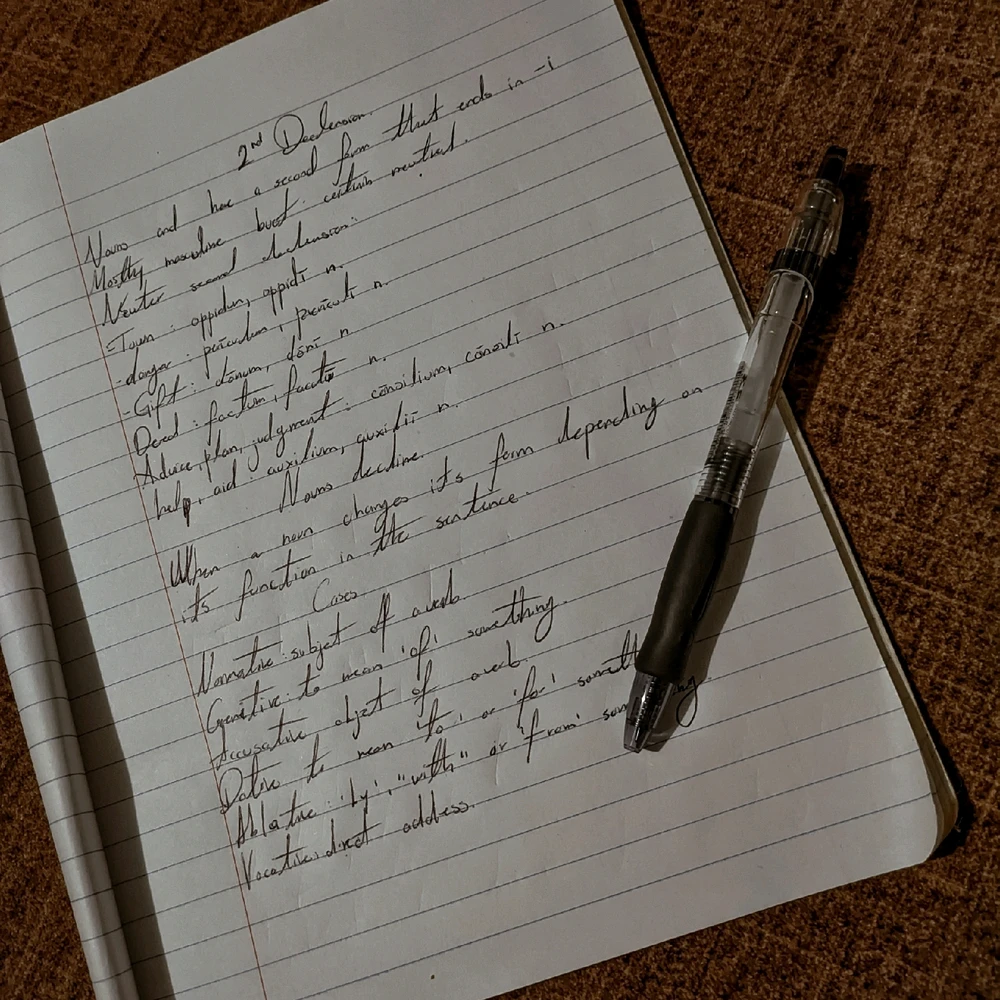 2nd Declension.
Nouns and have a second form that ends in -i
Mostly masculine but certain neutral.
Neuter second declension:
-Town: oppidum, oppidī n.
-danger: perīculum, perīculī n.
-Gift: dōnum, dōnī n
Deed: factum, factī n.
Advice, plan, judgment: cōnsilium, cōnsilī n.
help, aid: auxilium, auxiliī n.
Nouns decline.
When a noun changes it's form depending on
its function in the sentence.
Cases
Nomnative: subject of a verb.
Genitive: to mean 'of' something.
Accusative object of a verb.
Dative to mean 'to' or 'for' something
Ablative 'by', "with" or 'from'
Vocative: direct address.